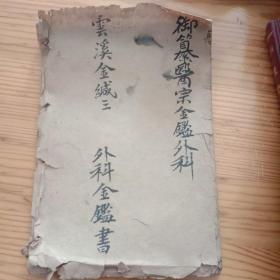 御纂醫宗金鑑外科
雲溪金緘三
外科金鑑書